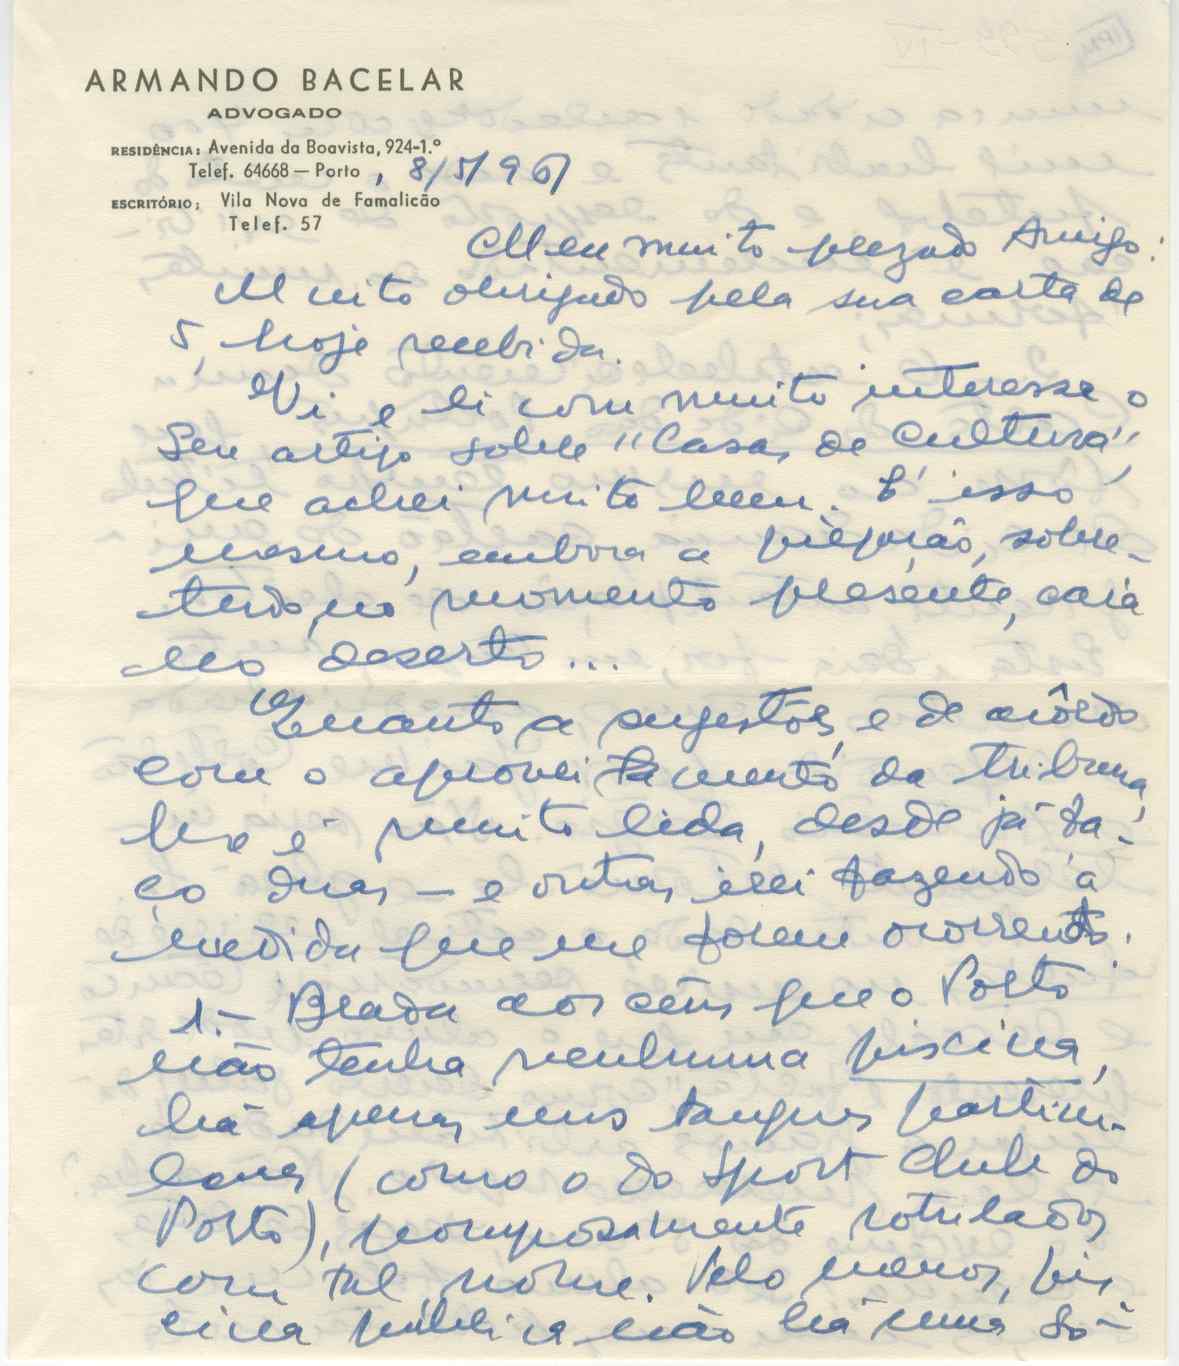 ARMANDO BACELAR
ADVOGADO
RESIDÊNCIA: Avenida da Boavista, 924-1.º
Telef. 64668 — Porto, 8/5/961
ESCRITÓRIO: Vila Nova de Famalicão
Telef. 57
Meu muito prezado Amigo:
Muito obrigado pela sua carta de
5, hoje recebida.
Vi e li com muito interesse o
Seu artigo sobre "Casas de Cultura",
que achei muito bem. É isso
mesmo, embora a pregação, sobre-
tudo no momento presente, caia
no deserto...
Quanto a sugestões, e de acôrdo
com o aproveitamento da tribuna,
que é muito lida, desde já fa-
ço duas — e outras irei fazendo à
medida que me forem ocorrendo.
1.— Brada aos céus que o Porto
não tenha nenhuma piscina,
há apenas uns tanques particu-
lares (como o do Sport Clube do
Porto), pomposamente rotulados
com tal nome. Pelo menos, pis
cina pública não há uma só